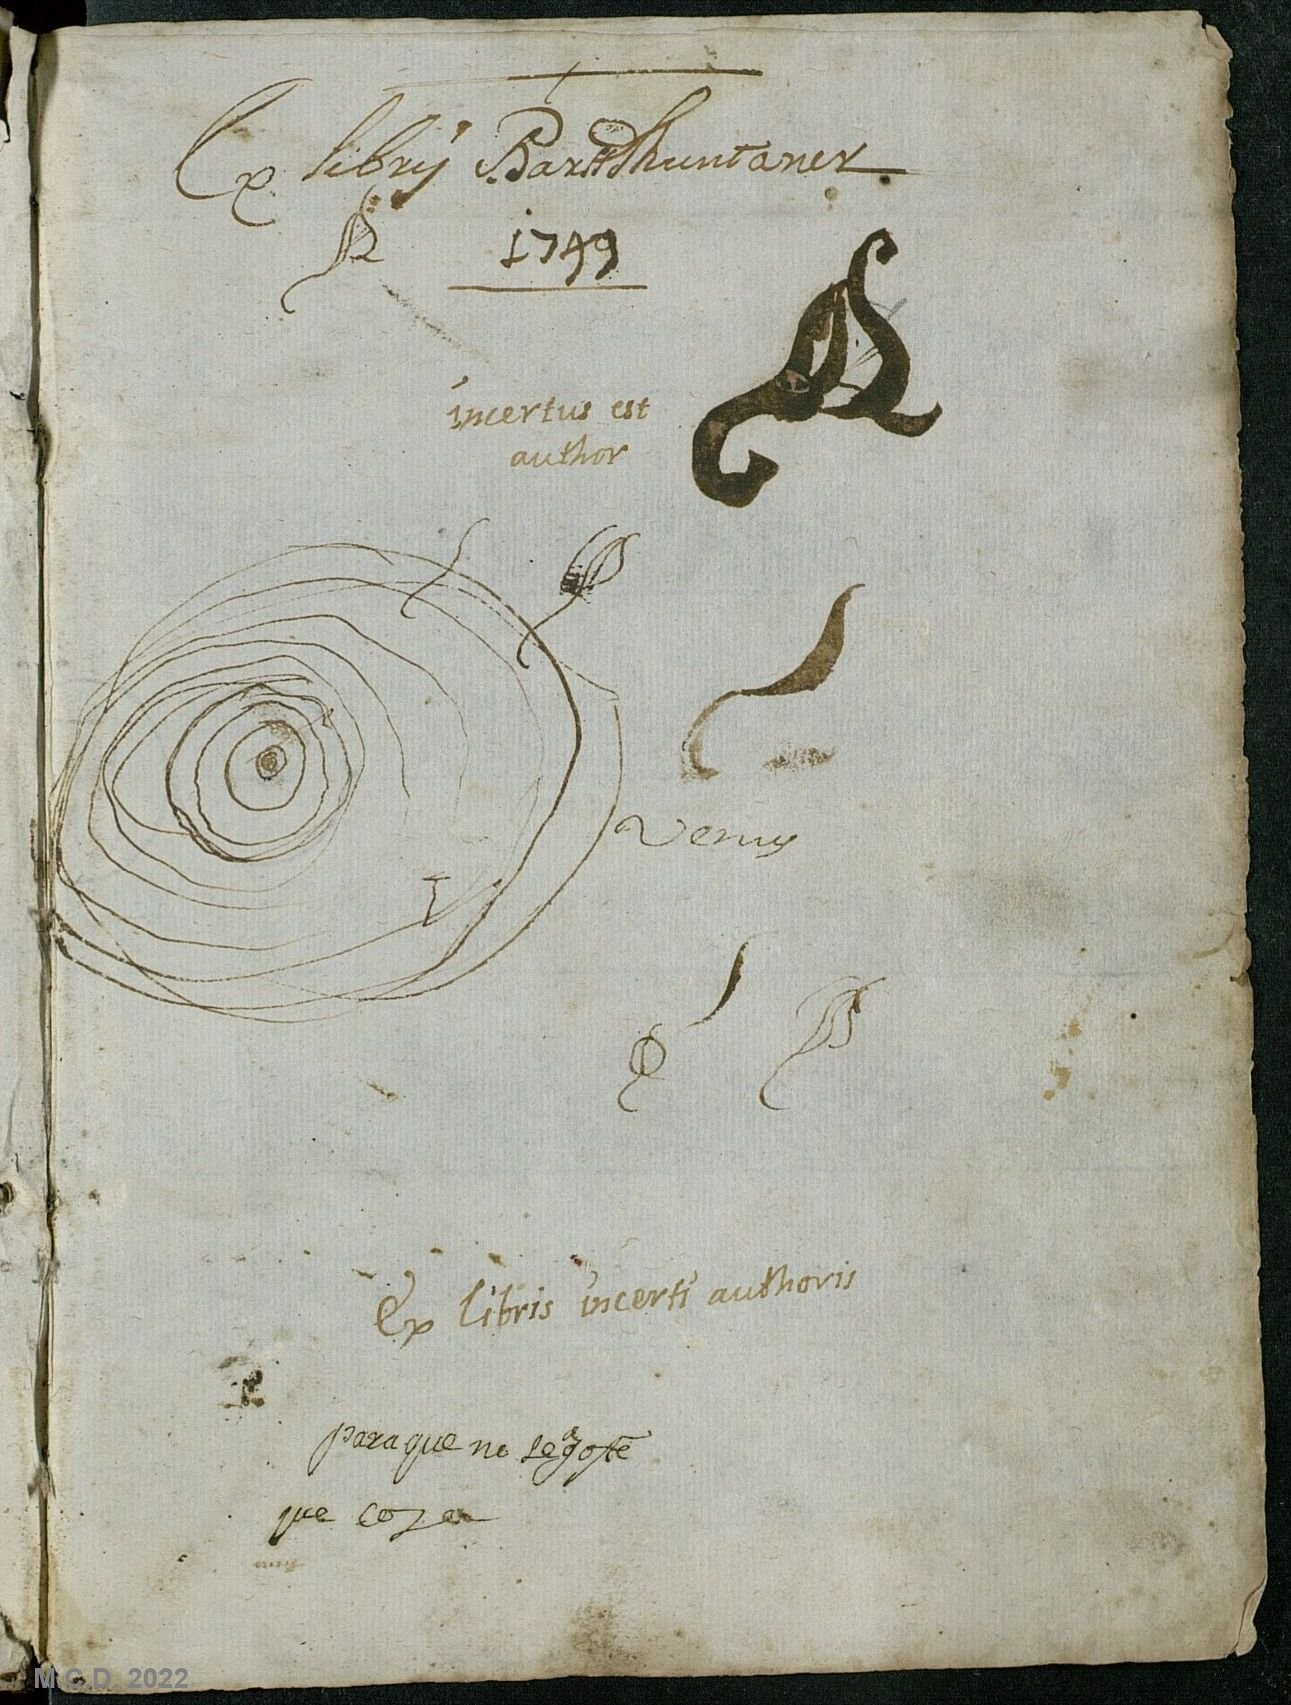 Ex librij Barth Muntaner
1749
incertus est
author
Venus
Ex libris incerti authoris
para que no se
que
M.C.D. 2022